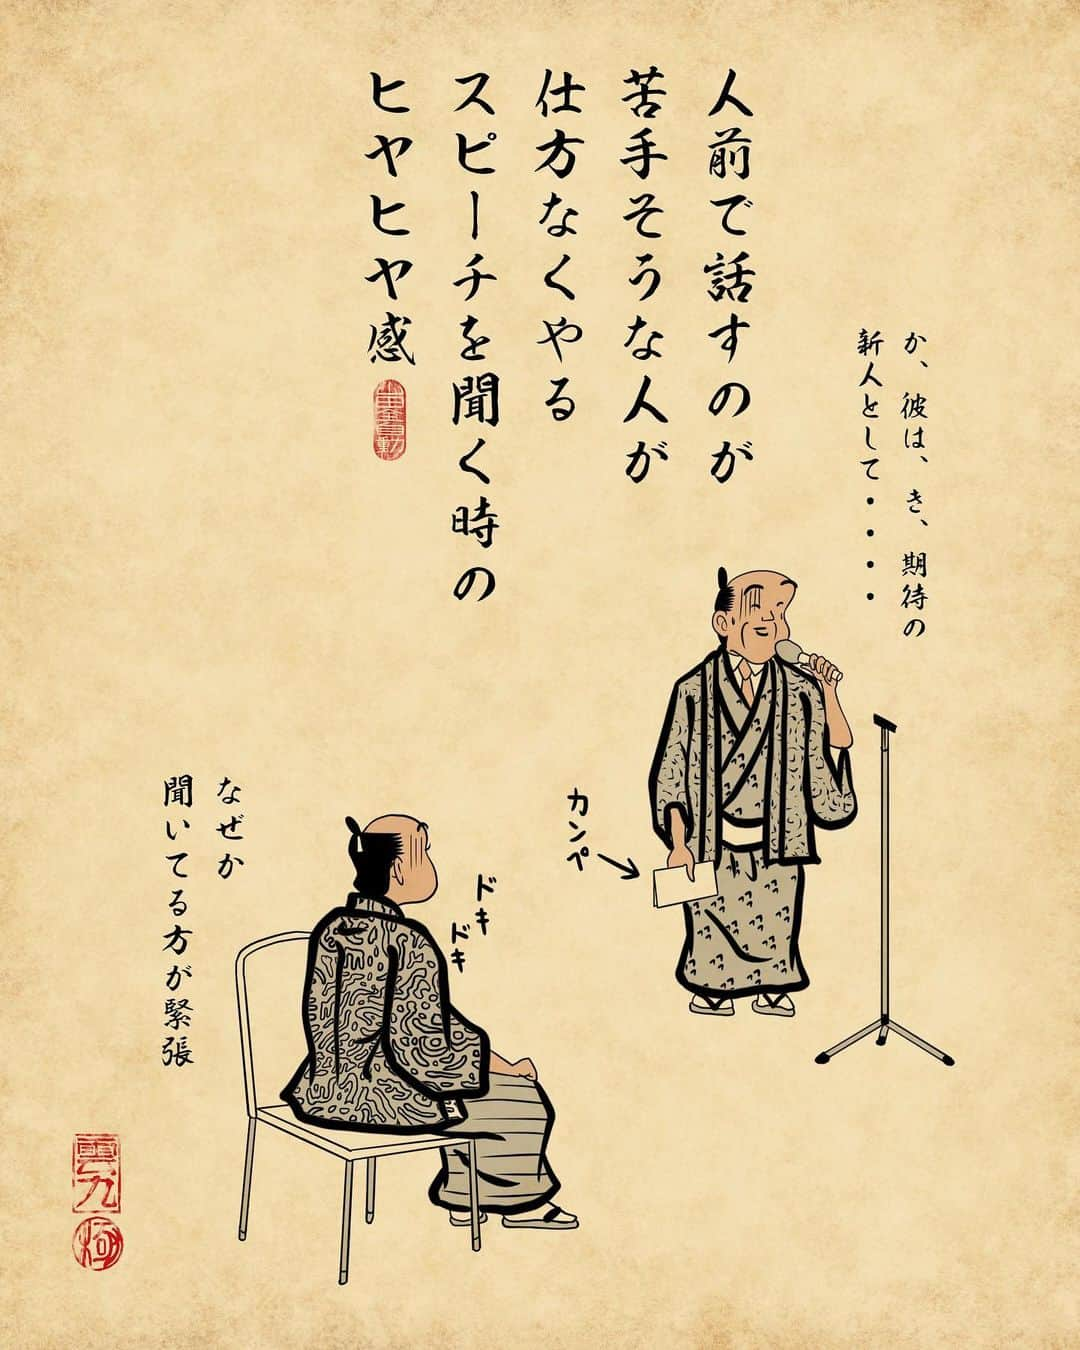 人前で話すのが
苦手そうな人が
仕方なくやる
スピーチを聞く時の
ヒヤヒヤ感
か、彼は、き、期待の
新人として・・・・
カンペ
ドキ
ドキ
なぜか
聞いてる方が緊張